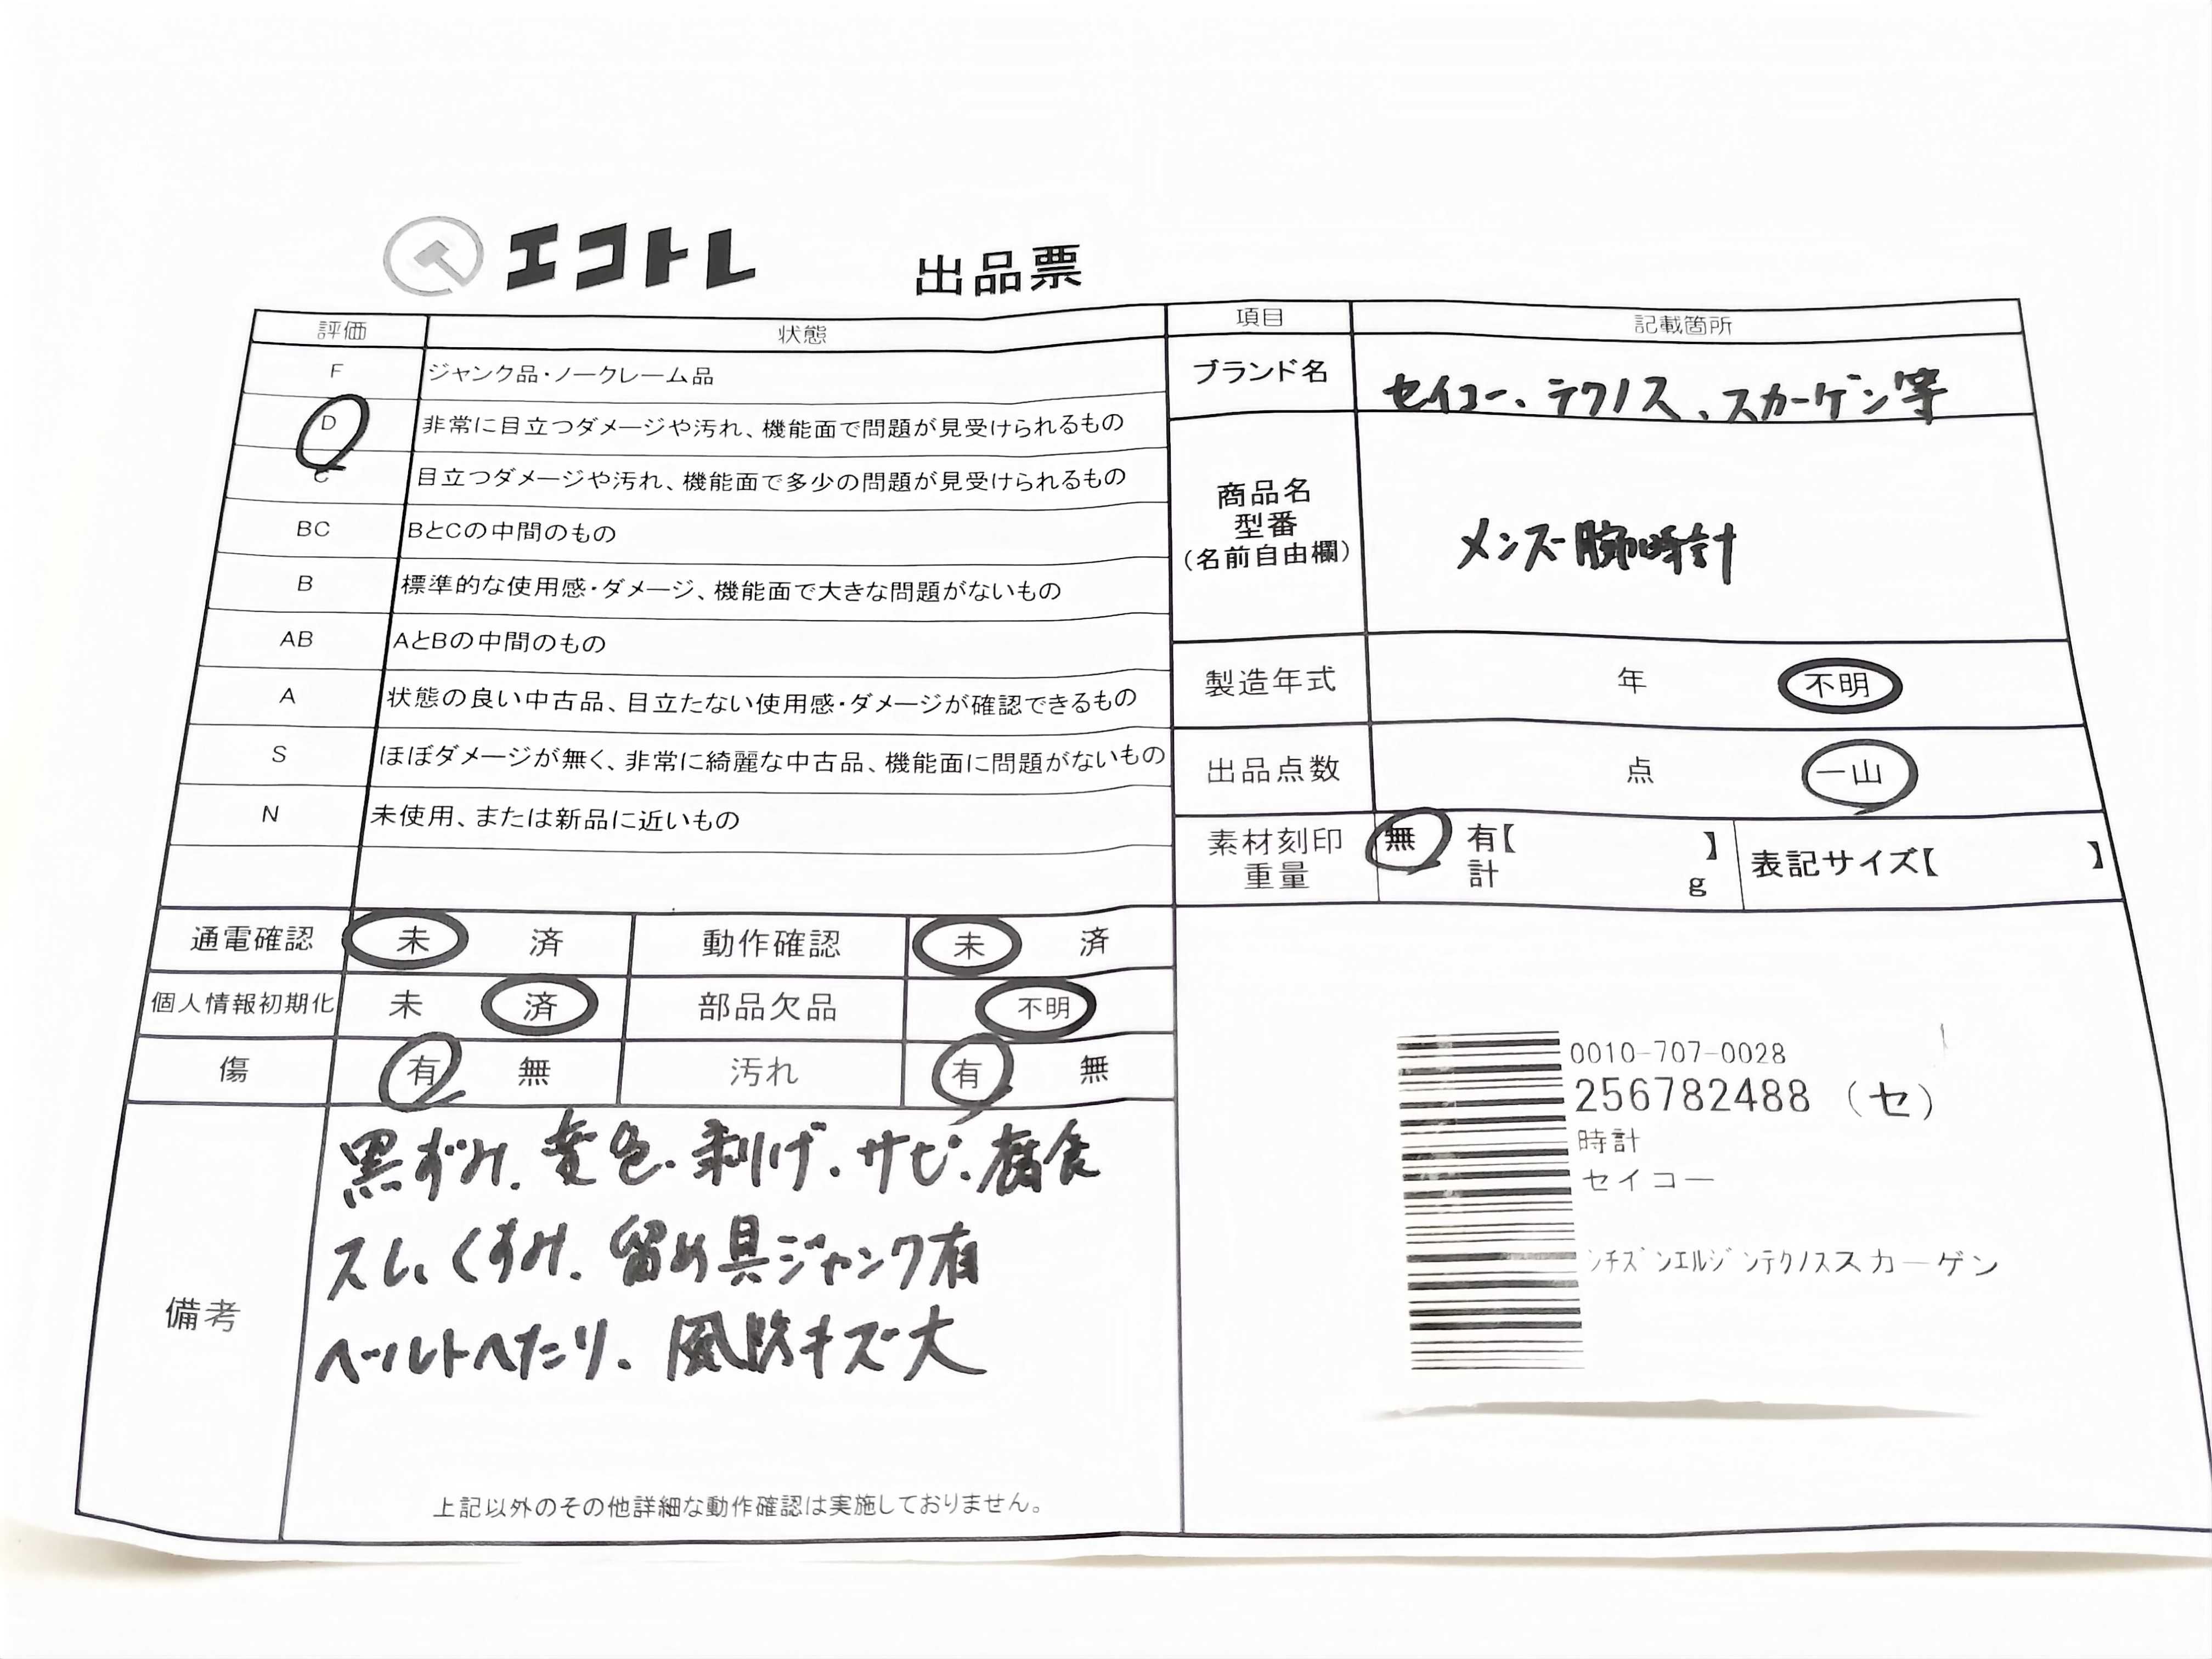 エコトレ 出品票
評価 状態
F ジャンク品・ノークレーム品
D 非常に目立つダメージや汚れ、機能面で問題が見受けられるもの
C 目立つダメージや汚れ、機能面で多少の問題が見受けられるもの
BC BとCの中間のもの
B 標準的な使用感・ダメージ、機能面で大きな問題がないもの
AB AとBの中間のもの
A 状態の良い中古品、目立たない使用感・ダメージが確認できるもの
S ほぼダメージが無く、非常に綺麗な中古品、機能面に問題がないもの
N 未使用、または新品に近いもの
通電確認 未 済 動作確認 未 済
個人情報初期化 未 済 部品欠品 不明
傷 有 無 汚れ 有 無
備考
黒ずみ、変色、剥げ、サビ、腐食
スレ、くすみ、留め具ジャンク有
ベルトへたり、風防キズ大
上記以外のその他詳細な動作確認は実施しておりません。
項目 記載箇所
ブランド名 セイコー、テクノス、スカーゲン等
商品名
型番
(名前自由欄)
メンズ腕時計
製造年式 年 不明
出品点数 点 一山
素材刻印 無 有【 】
重量 計 g
表記サイズ【 】
0010-707-0028
256782488 (セ)
時計
セイコー
チズンエルジンテクノススカーゲン